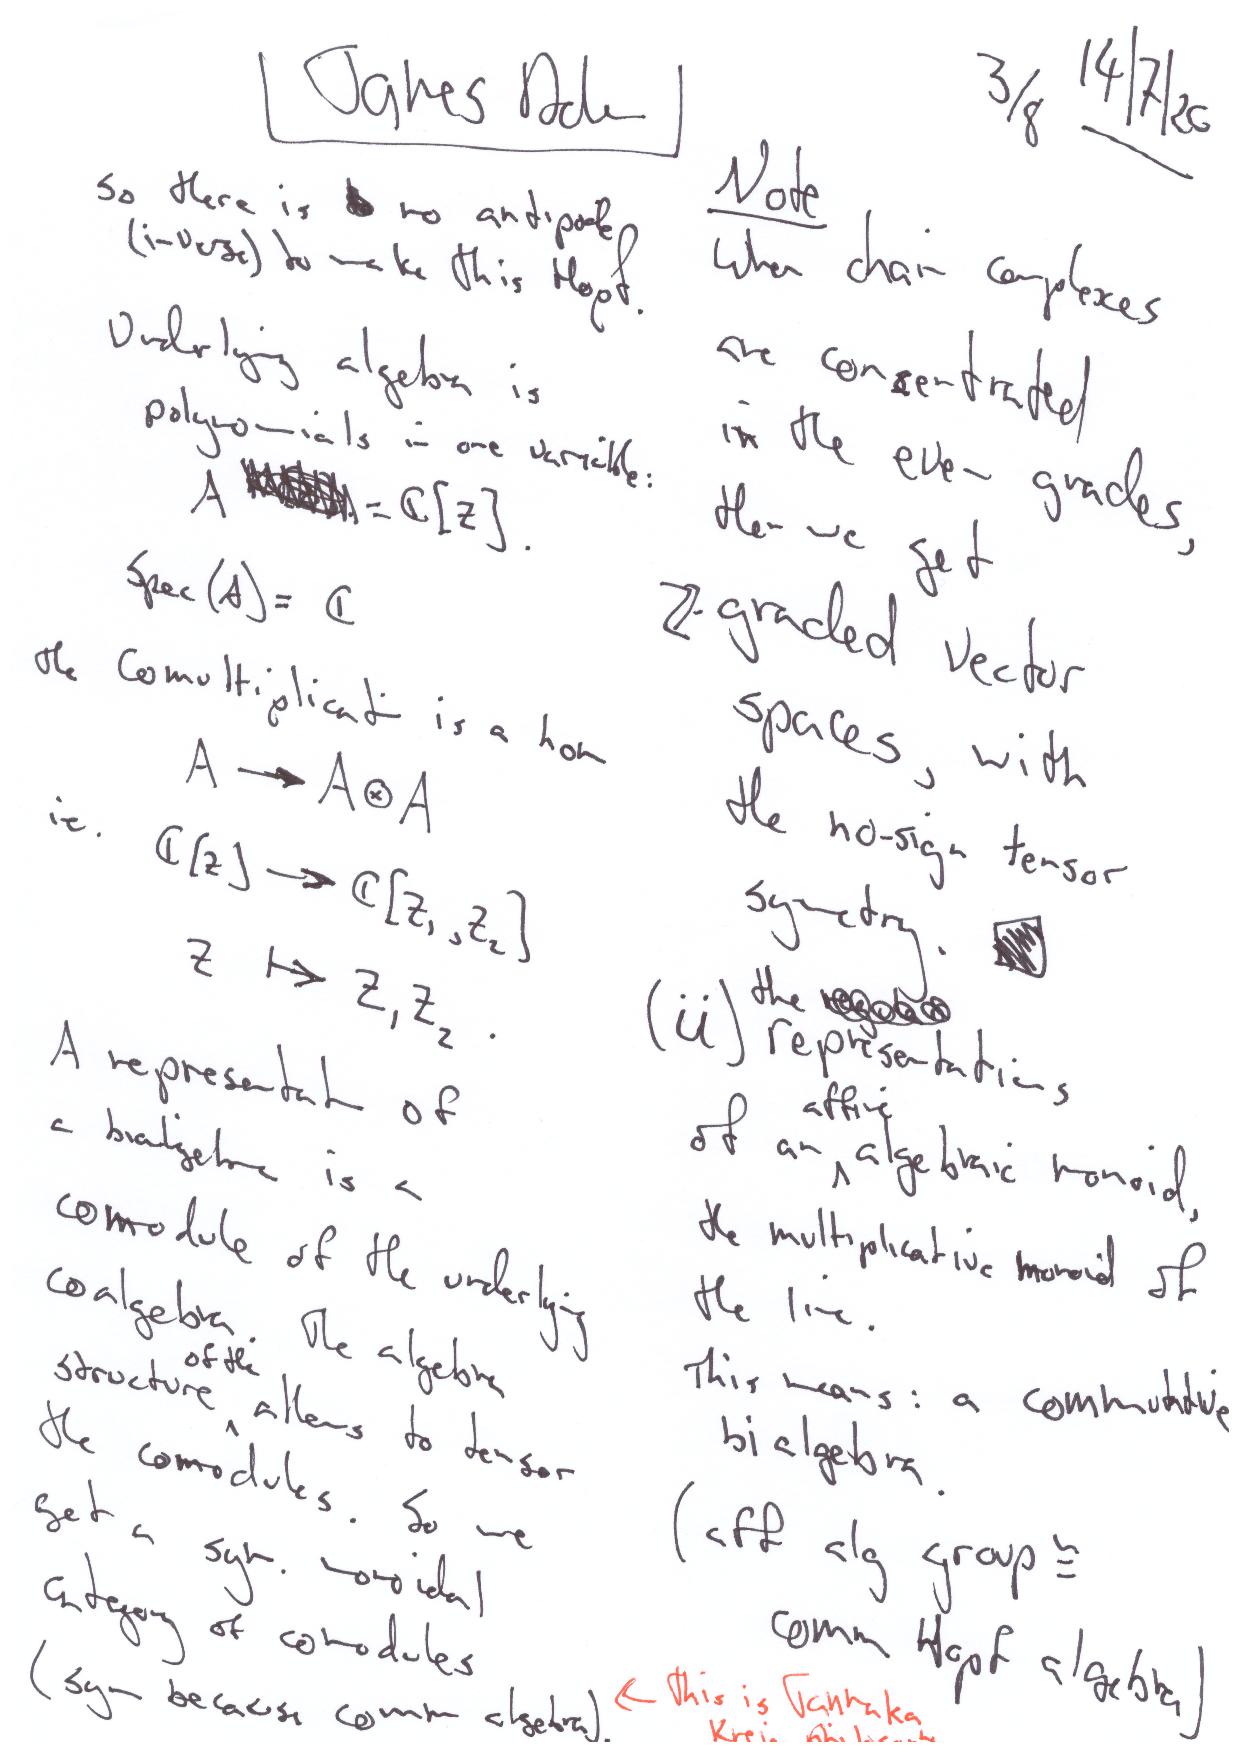 James Dol
3/8 14/7/20
so there is no antipode
(inverse) to make this Hopf.
Underlying algebra is
polynomials in one variable:
A = ℂ[z].
Spec(A) = ℂ
the comultiplicat is a hom
A → A⊗A
ie. ℂ[z] → ℂ[z₁, z₂]
z ↦ z₁z₂.
A representat of
a bialgebra is a
comodule of the underlying
coalgebra. The algebra
structure of the allows to tensor
the comodules. So we
get a sym. monoidal
category of comodules
(sym because comm algebra).
Note
When chain complexes
are consentrated
in the even grades,
then we get
ℤ-graded vector
spaces, with
the no-sign tensor
symetry.
(ii) the
representations
of an affine algebraic monoid,
the multiplicative monoid of
the line.
This means: a commutative
bialgebra.
(aff alg group ≅
comm Hopf algebra)
← This is Tannaka
Krein